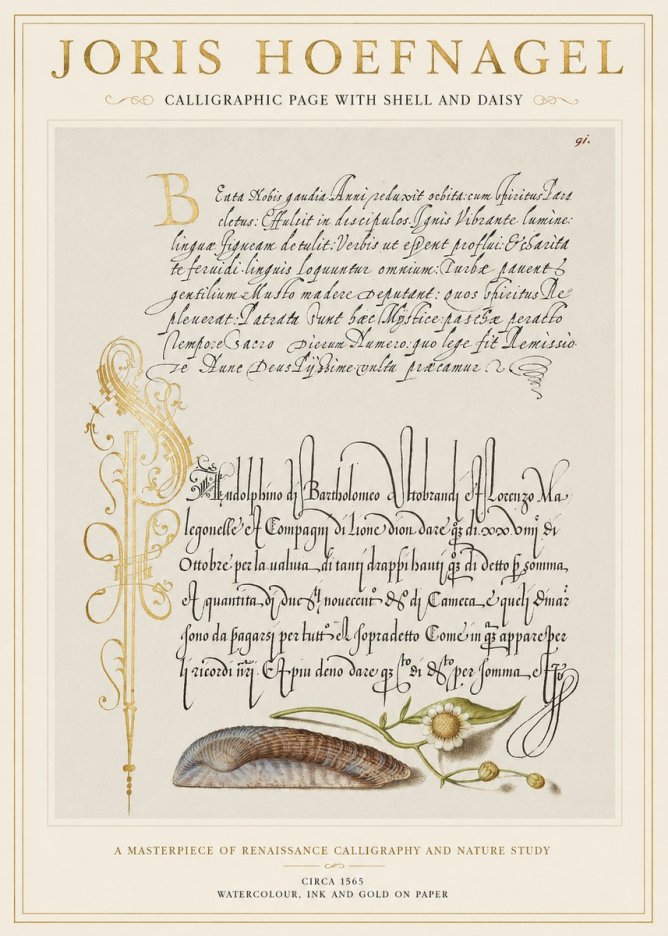 JORIS HOEFNAGEL
CALLIGRAPHIC PAGE WITH SHELL AND DAISY
91.
BEata Nobis gaudia Anni reduxit orbita: cum spiritus Para
cletus: Effulsit in discipulos. Ignis Vibrante lumine:
linguæ figuram detulit: Verbis ut essent proflui: & charita
te fervidi linguis loquuntur omnium: Turbæ pavent
gentilium Musto madere deputant: quos spiritus Re
pleverat: Patrata sunt hæc Mystice: paschæ peracto
Tempore Sacro dierum Numero: quo lege fit Remissio
Te Nunc Deus Pijssime vultu præcamur
di Bartholomeo Altobrandi Et Lorenzo Ma
Et Compagni di Lione dion dare di xxviiij di
Ottobre per la valuta di tanti drappi hauti di detto somma
Et quantita di di Camera, e queli
sono da pagarsi per tutto el sopradetto Come in appare per
li ricordi Et piu deno dare di per somma
A MASTERPIECE OF RENAISSANCE CALLIGRAPHY AND NATURE STUDY
CIRCA 1565
WATERCOLOUR, INK AND GOLD ON PAPER